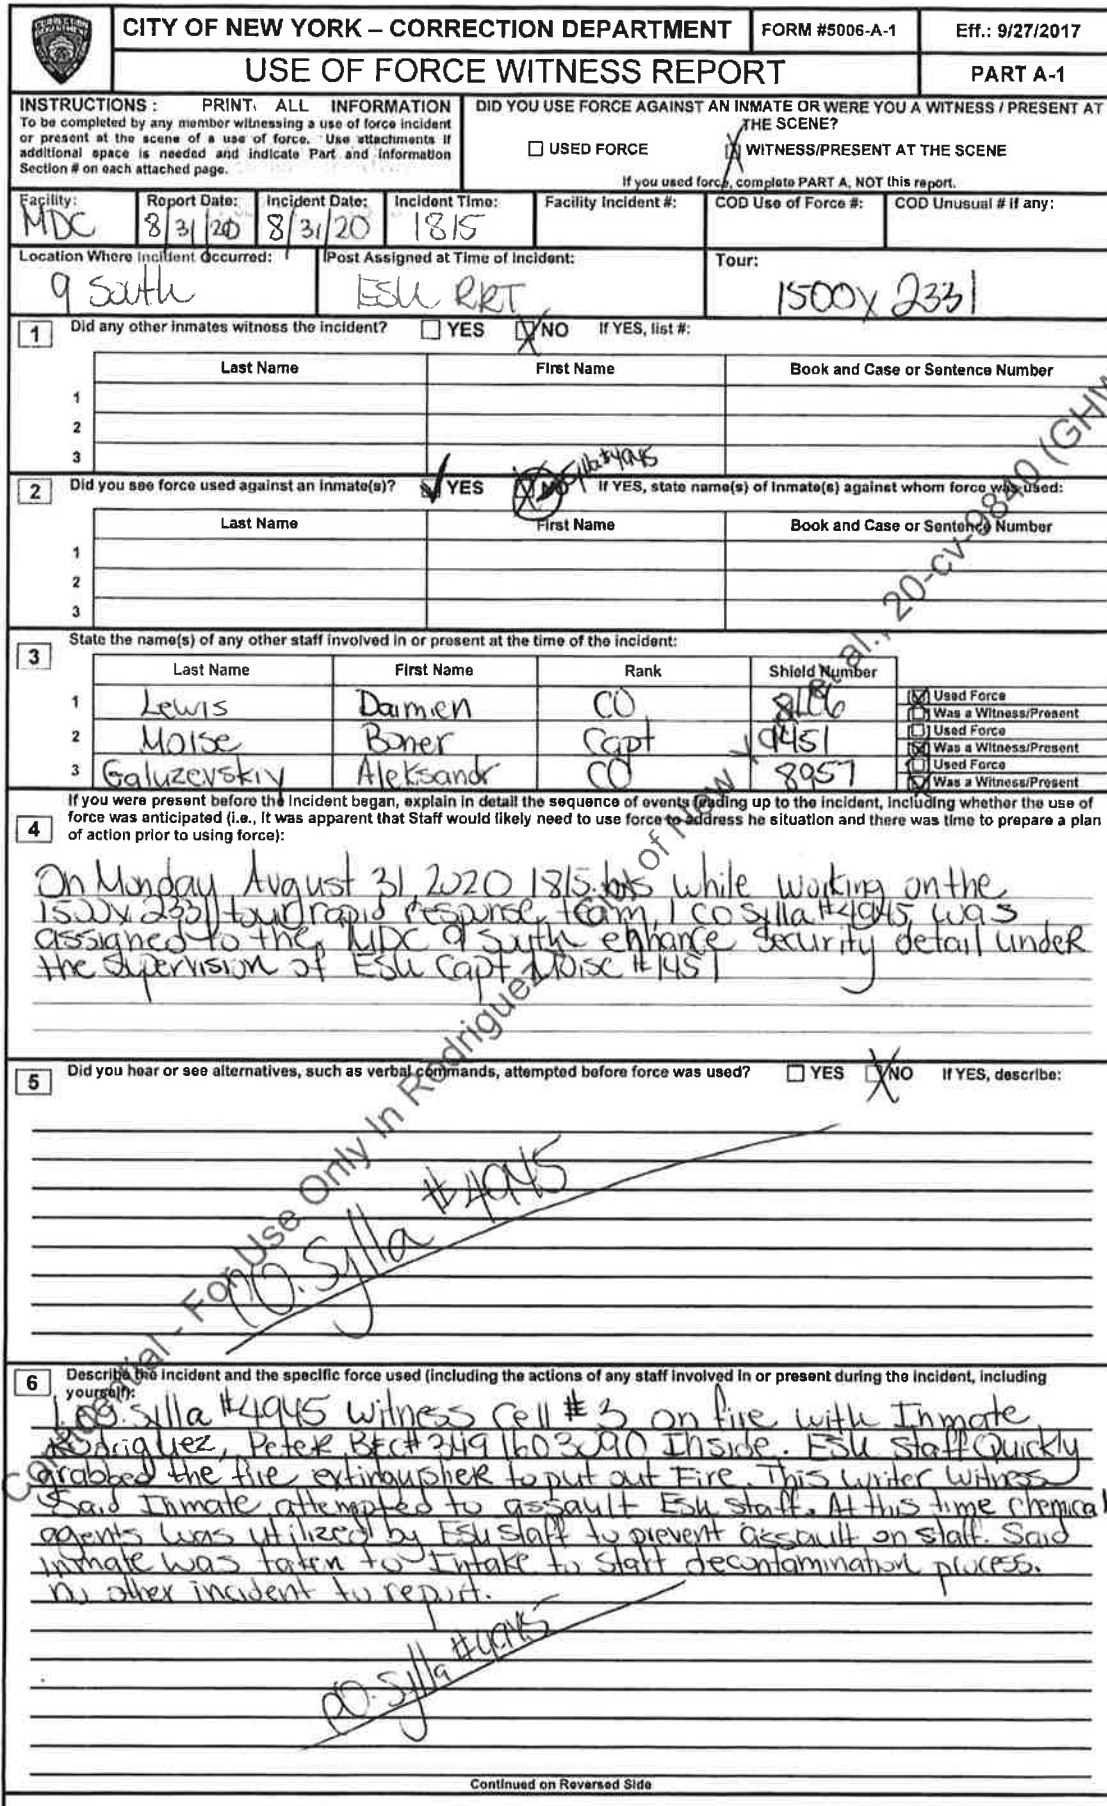 CITY OF NEW YORK – CORRECTION DEPARTMENT
FORM #5006-A-1
Eff.: 9/27/2017
USE OF FORCE WITNESS REPORT
PART A-1
INSTRUCTIONS : PRINT ALL INFORMATION
To be completed by any member witnessing a use of force incident
or present at the scene of a use of force. Use attachments if
additional space is needed and indicate Part and Information
Section # on each attached page.
DID YOU USE FORCE AGAINST AN INMATE OR WERE YOU A WITNESS / PRESENT AT
THE SCENE?
USED FORCE
WITNESS/PRESENT AT THE SCENE
If you used force, complete PART A, NOT this report.
Facility: MDC
Report Date: 8/31/20
Incident Date: 8/31/20
Incident Time: 1815
Facility Incident #:
COD Use of Force #:
COD Unusual # if any:
Location Where Incident Occurred: 9 South
Post Assigned at Time of Incident: ESU RRT
Tour: 1500 x 2331
1 Did any other inmates witness the incident? YES NO If YES, list #:
Last Name First Name Book and Case or Sentence Number
1
2
3
Sylla #4945
2 Did you see force used against an inmate(s)? YES NO If YES, state name(s) of Inmate(s) against whom force was used:
Last Name First Name Book and Case or Sentence Number
1
2
3
3 State the name(s) of any other staff involved in or present at the time of the incident:
Last Name First Name Rank Shield Number
1 Lewis Damien CO Used Force
Was a Witness/Present
2 Moise Boner Capt Used Force
Was a Witness/Present
3 Galuzevskiy Aleksandr CO 8957 Used Force
Was a Witness/Present
4 If you were present before the incident began, explain in detail the sequence of events leading up to the incident, including whether the use of
force was anticipated (i.e., it was apparent that Staff would likely need to use force to address he situation and there was time to prepare a plan
of action prior to using force):
On Monday August 31 2020 1815 hrs while working on the
1500x2331 tour rapid response team, I CO Sylla #4945 was
assigned to the MDC 9 South enhance Security detail under
the supervision of ESU Capt Moise #1451
5 Did you hear or see alternatives, such as verbal commands, attempted before force was used? YES NO If YES, describe:
CO. Sylla #4945
6 Describe the incident and the specific force used (including the actions of any staff involved in or present during the incident, including
yourself):
I CO. Sylla #4945 witness Cell #3 on fire with Inmate
Rodriguez, Peter B&C# 3491603090 Inside. ESU Staff Quickly
grabbed the fire extinguisher to put out Fire. This writer witness
Said Inmate attempted to assault ESU staff. At this time chemical
agents was utilized by ESU staff to prevent assault on staff. Said
inmate was taken to Intake to start decontamination process.
no other incident to report.
CO. Sylla #4945
Continued on Reversed Side
Confidential - For Use Only In Rodriguez City of New et al., 20-cv-9840 (GH